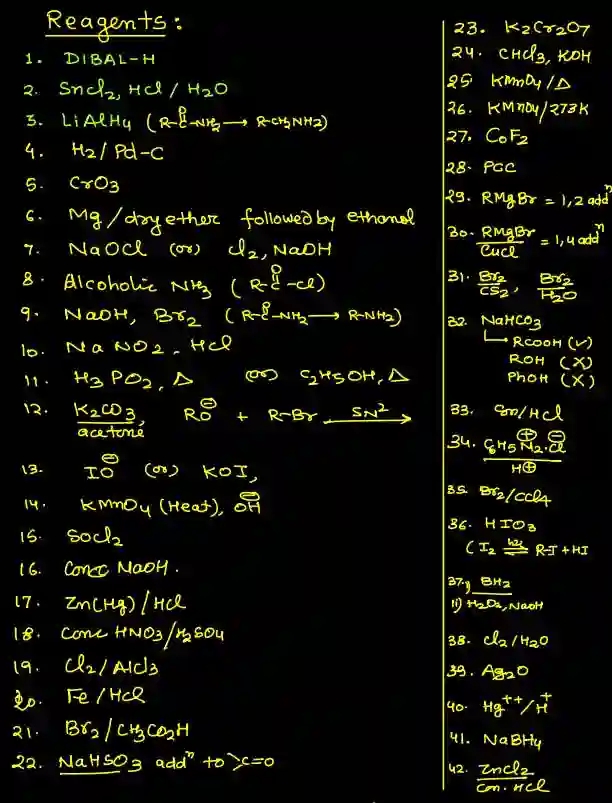 Reagents :
1. DIBAL-H
2. SnCl2, HCl / H2O
3. LiAlH4 (R-C-NH2 → R-CH2NH2)
O
4. H2/ Pd-C
5. CrO3
6. Mg/dry ether followed by ethanol
7. NaOCl (or) Cl2, NaOH
8. Alcoholic NH3 (R-C-Cl)
O
9. NaOH, Br2 (R-C-NH2 → R-NH2)
O
10. NaNO2, HCl
11. H3PO2, Δ (or) C2H5OH, Δ
12. K2CO3, RO⊖ + R-Br SN2 →
acetone
13. IO⊖ (or) KOI,
14. KMnO4 (Heat), OH⊖
15. SOCl2
16. Conc NaOH.
17. Zn(Hg) / HCl
18. Conc HNO3/H2SO4
19. Cl2/AlCl3
20. Fe/HCl
21. Br2/CH3CO2H
22. NaHSO3 addn to >C=O
23. K2Cr2O7
24. CHCl3, KOH
25 KMnO4/Δ
26. KMnO4/273K
27. CoF2
28. PCC
29. RMgBr = 1,2 addn
30. RMgBr = 1,4 addn
CuCl
31. Br2 Br2
CS2, H2O
32. NaHCO3
↳ RCOOH (✓)
ROH (X)
PhOH (X)
33. Sn/HCl
34. C6H5N2⊕.Cl⊖
H⊕
35. Br2/CCl4
36. HIO3
(I2 ⇌ R-I + HI
37. i) BH2
ii) H2O2, NaOH
38. Cl2/H2O
39. Ag2O
40. Hg++/H+
41. NaBH4
42. ZnCl2
Con. HCl